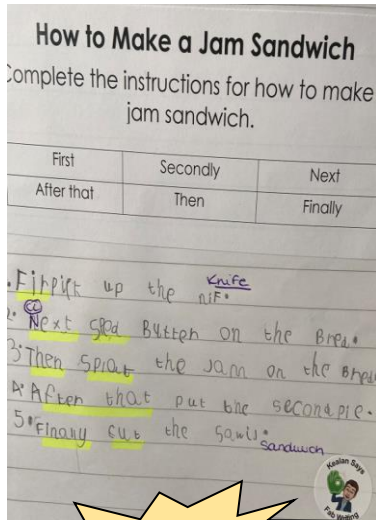 How to Make a Jam Sandwich
Complete the instructions for how to make
jam sandwich.
First Secondly Next
After that Then Finally
Knife
pick up the nif.
2. Next sped Butter on the Bred.
3. Then sprat the Jam on the Bred
4. After that put the secondpie.
5. Finaly cut the
sandwich
Kealan Says
Fab Writing